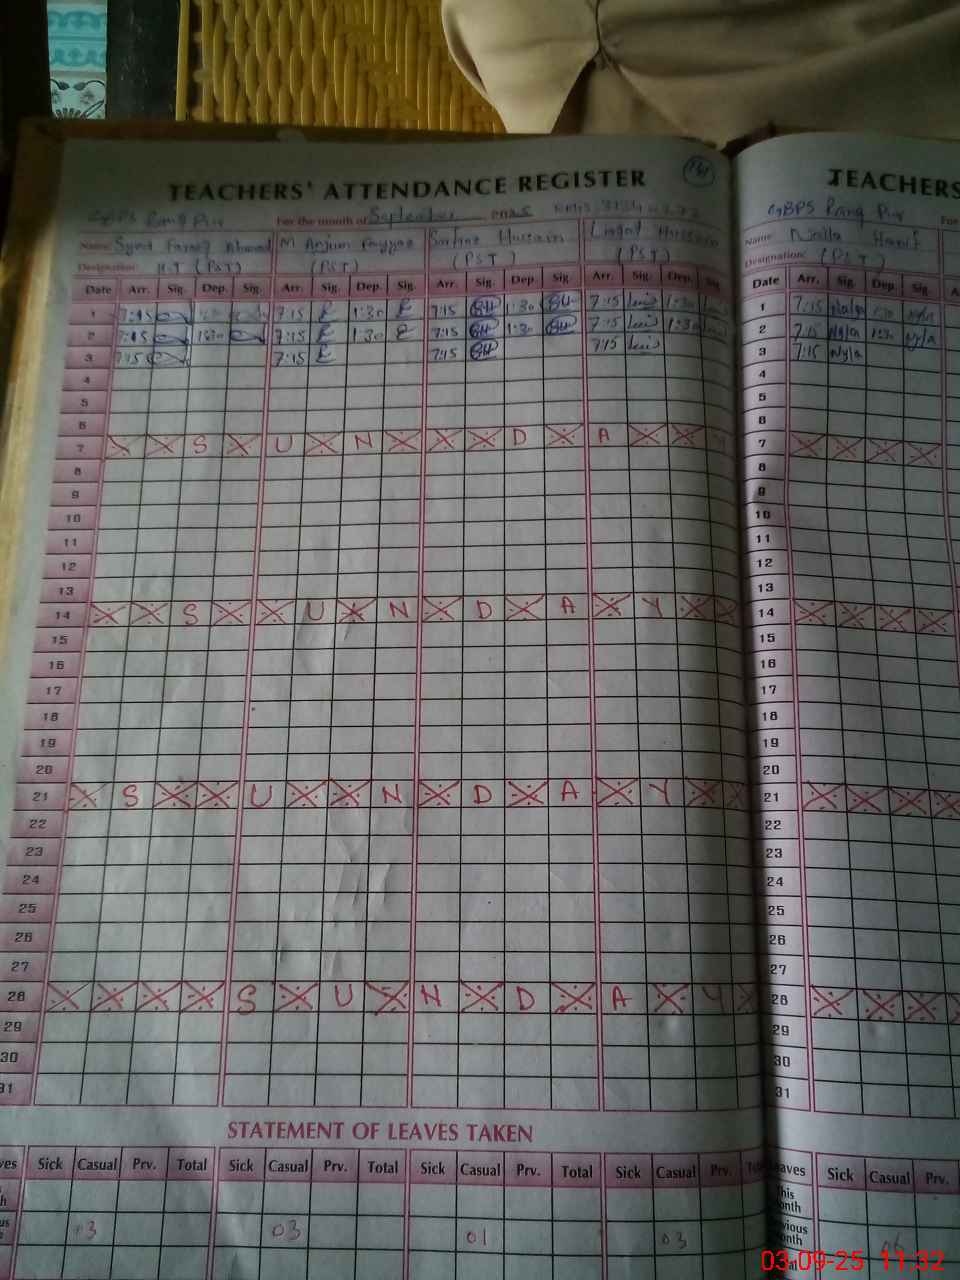 TEACHERS' ATTENDANCE REGISTER
GBPS Rang Pur For the month of September
Name: Syed Farooq Ahmad M Anjum Hussain
Designation: H.T (PST) (PST) (PST) (PST)
Date Arr. Sig. Dep. Sig. Arr. Sig. Dep. Sig. Arr. Sig. Dep. Sig. Arr. Sig. Dep. Sig.
1 7:45 7:15 1:30 7:15 1:30 7:15 1:30
2 7:45 1:30 7:15 1:30 7:15 1:30 7:15 1:30
3 7:45 7:15 7:15 7:15
4
5
6
7 S U N D A Y
8
9
10
11
12
13
14 S U N D A Y
15
16
17
18
19
20
21 S U N D A Y
22
23
24
25
26
27
28 S U N D A Y
29
30
31
STATEMENT OF LEAVES TAKEN
Sick Casual Prv. Total Sick Casual Prv. Total Sick Casual Prv. Total Sick Casual Prv.
03 03 01 03
TEACHERS
GBPS Rang Pur For
Name: Hanif
Designation: (PST)
Date Arr. Sig. Dep. Sig.
1 7:15 Nyla 1:30 Nyla
2 7:15 Nyla 1:30 Nyla
3 7:15 Nyla
4
5
6
7
8
9
10
11
12
13
14
15
16
17
18
19
20
21
22
23
24
25
26
27
28
29
30
31
Leaves Sick Casual Prv.
This
06
03-09-25 11:32